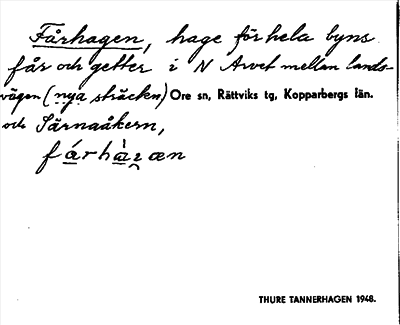 Fårhagen, hage för hela byns
får och getter i N Arvet mellan lands-
vägen (nya sträcken) Ore sn, Rättviks tg, Kopparbergs län.
och Särnaåkern,
fárhàꞬæn
THURE TANNERHAGEN 1948.